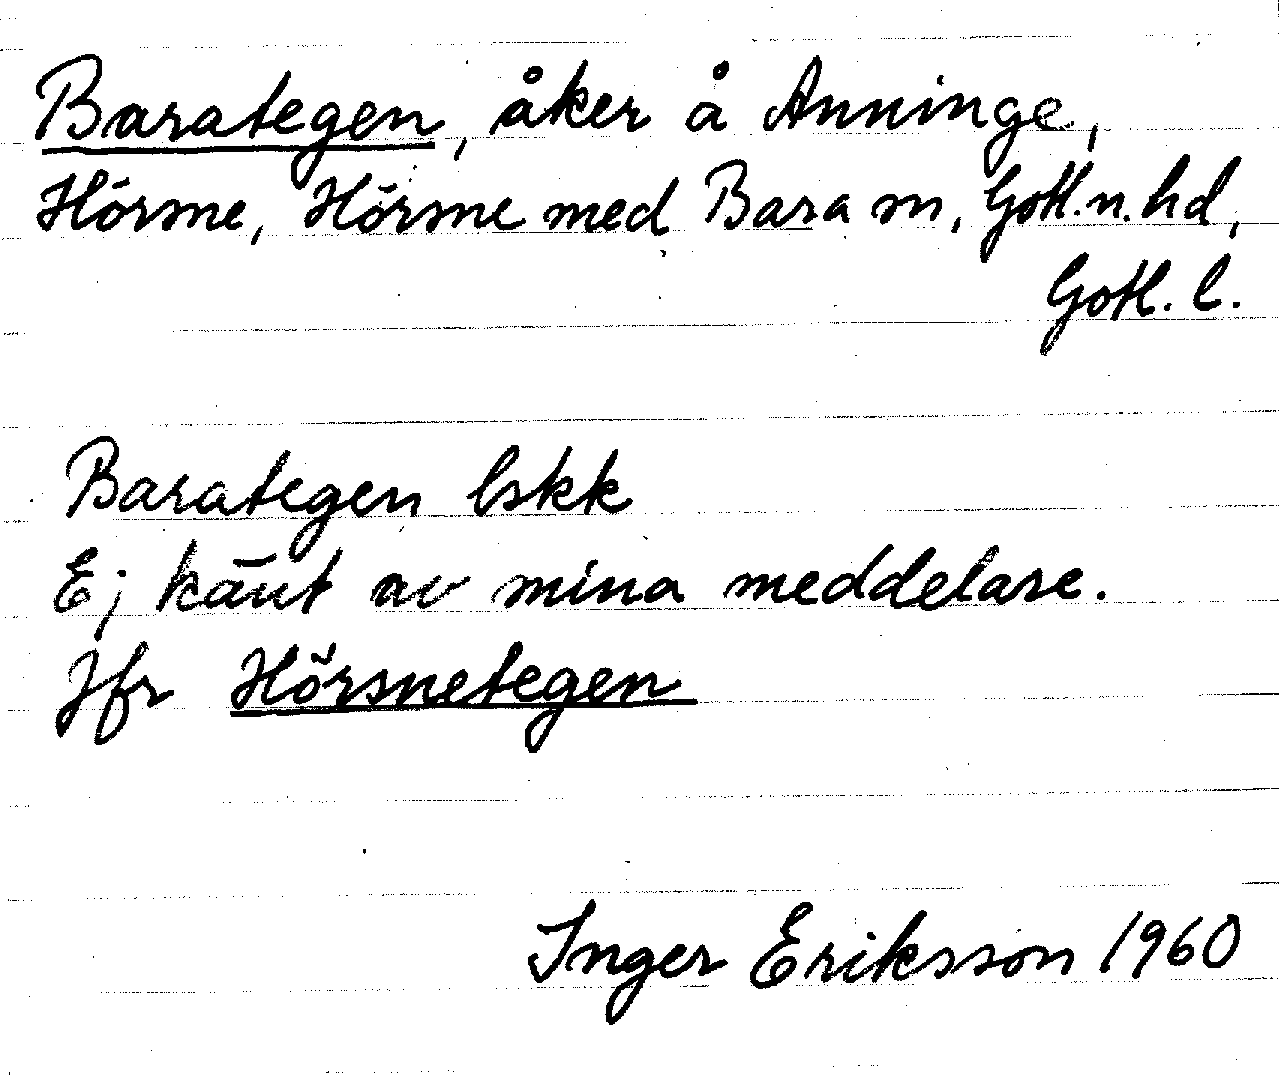 Barategen, åker å Anninge,
Hörsne, Hörsne med Bara sn, Gotl. n. hd,
Gotl. l.
Barategen lskk
Ej känt av mina meddelare.
Jfr Hörsnetegen
Inger Eriksson 1960